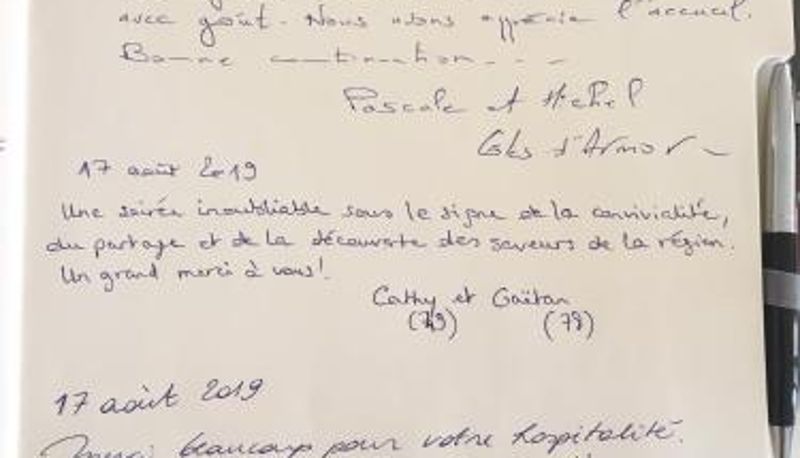 avec goût. Nous avons apprécié l'accueil.
Bonne continuation...
Pascale et Michel
Côtes d'Armor
17 août 2019
Une soirée inoubliable sous le signe de la convivialité,
du partage et de la découverte des saveurs de la région.
Un grand merci à vous!
Cathy et Gaëtan
(79) (78)
17 août 2019
Merci beaucoup pour votre hospitalité.